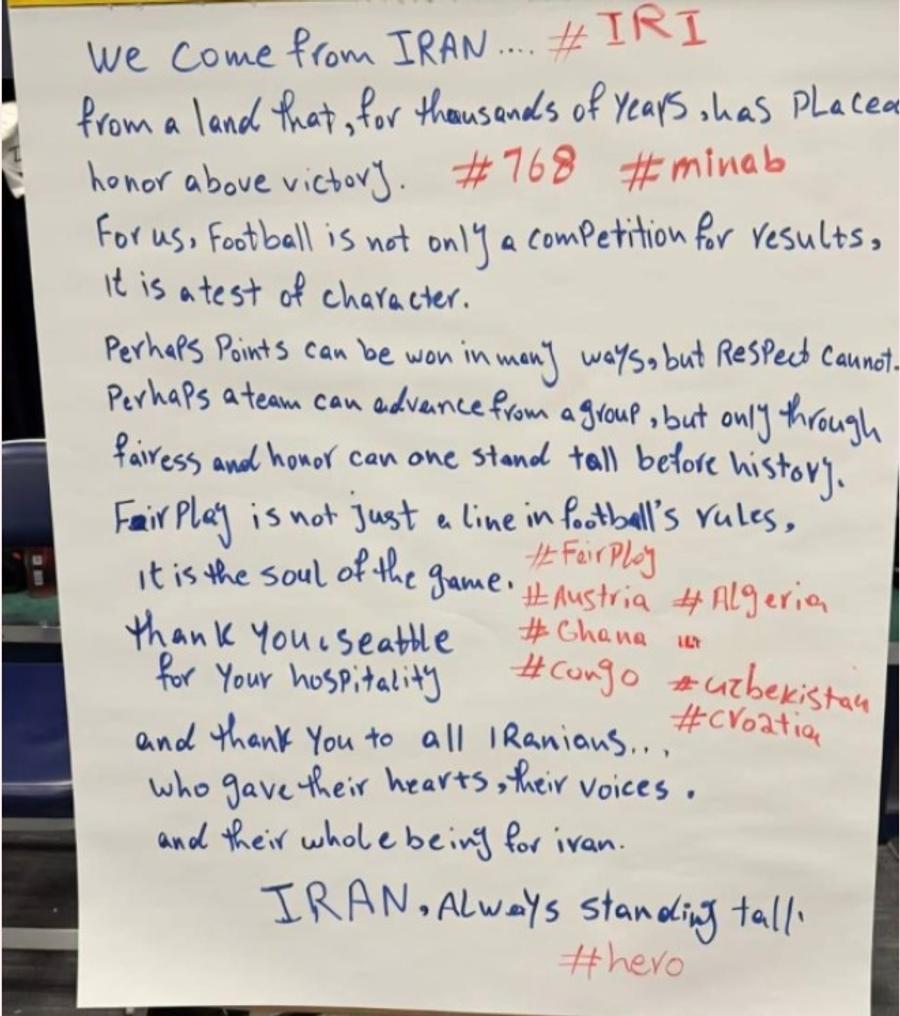 We come from IRAN.... #IRI
from a land that, for thousands of years, has placed
honor above victory. #768 #minab
For us, Football is not only a competition for results,
It is a test of character.
Perhaps Points can be won in many ways, but Respect cannot.
Perhaps a team can advance from a group, but only through
fairess and honor can one stand tall before history.
Fair Play is not just a line in football's rules,
it is the soul of the game.
#FairPlay
#Austria #Algeria
thank you, seattle #Ghana
for your hospitality #congo #uzbekistan
#croatia
and thank you to all IRanians...,
who gave their hearts, their voices.
and their whole being for iran.
IRAN, Always standing tall.
#hero